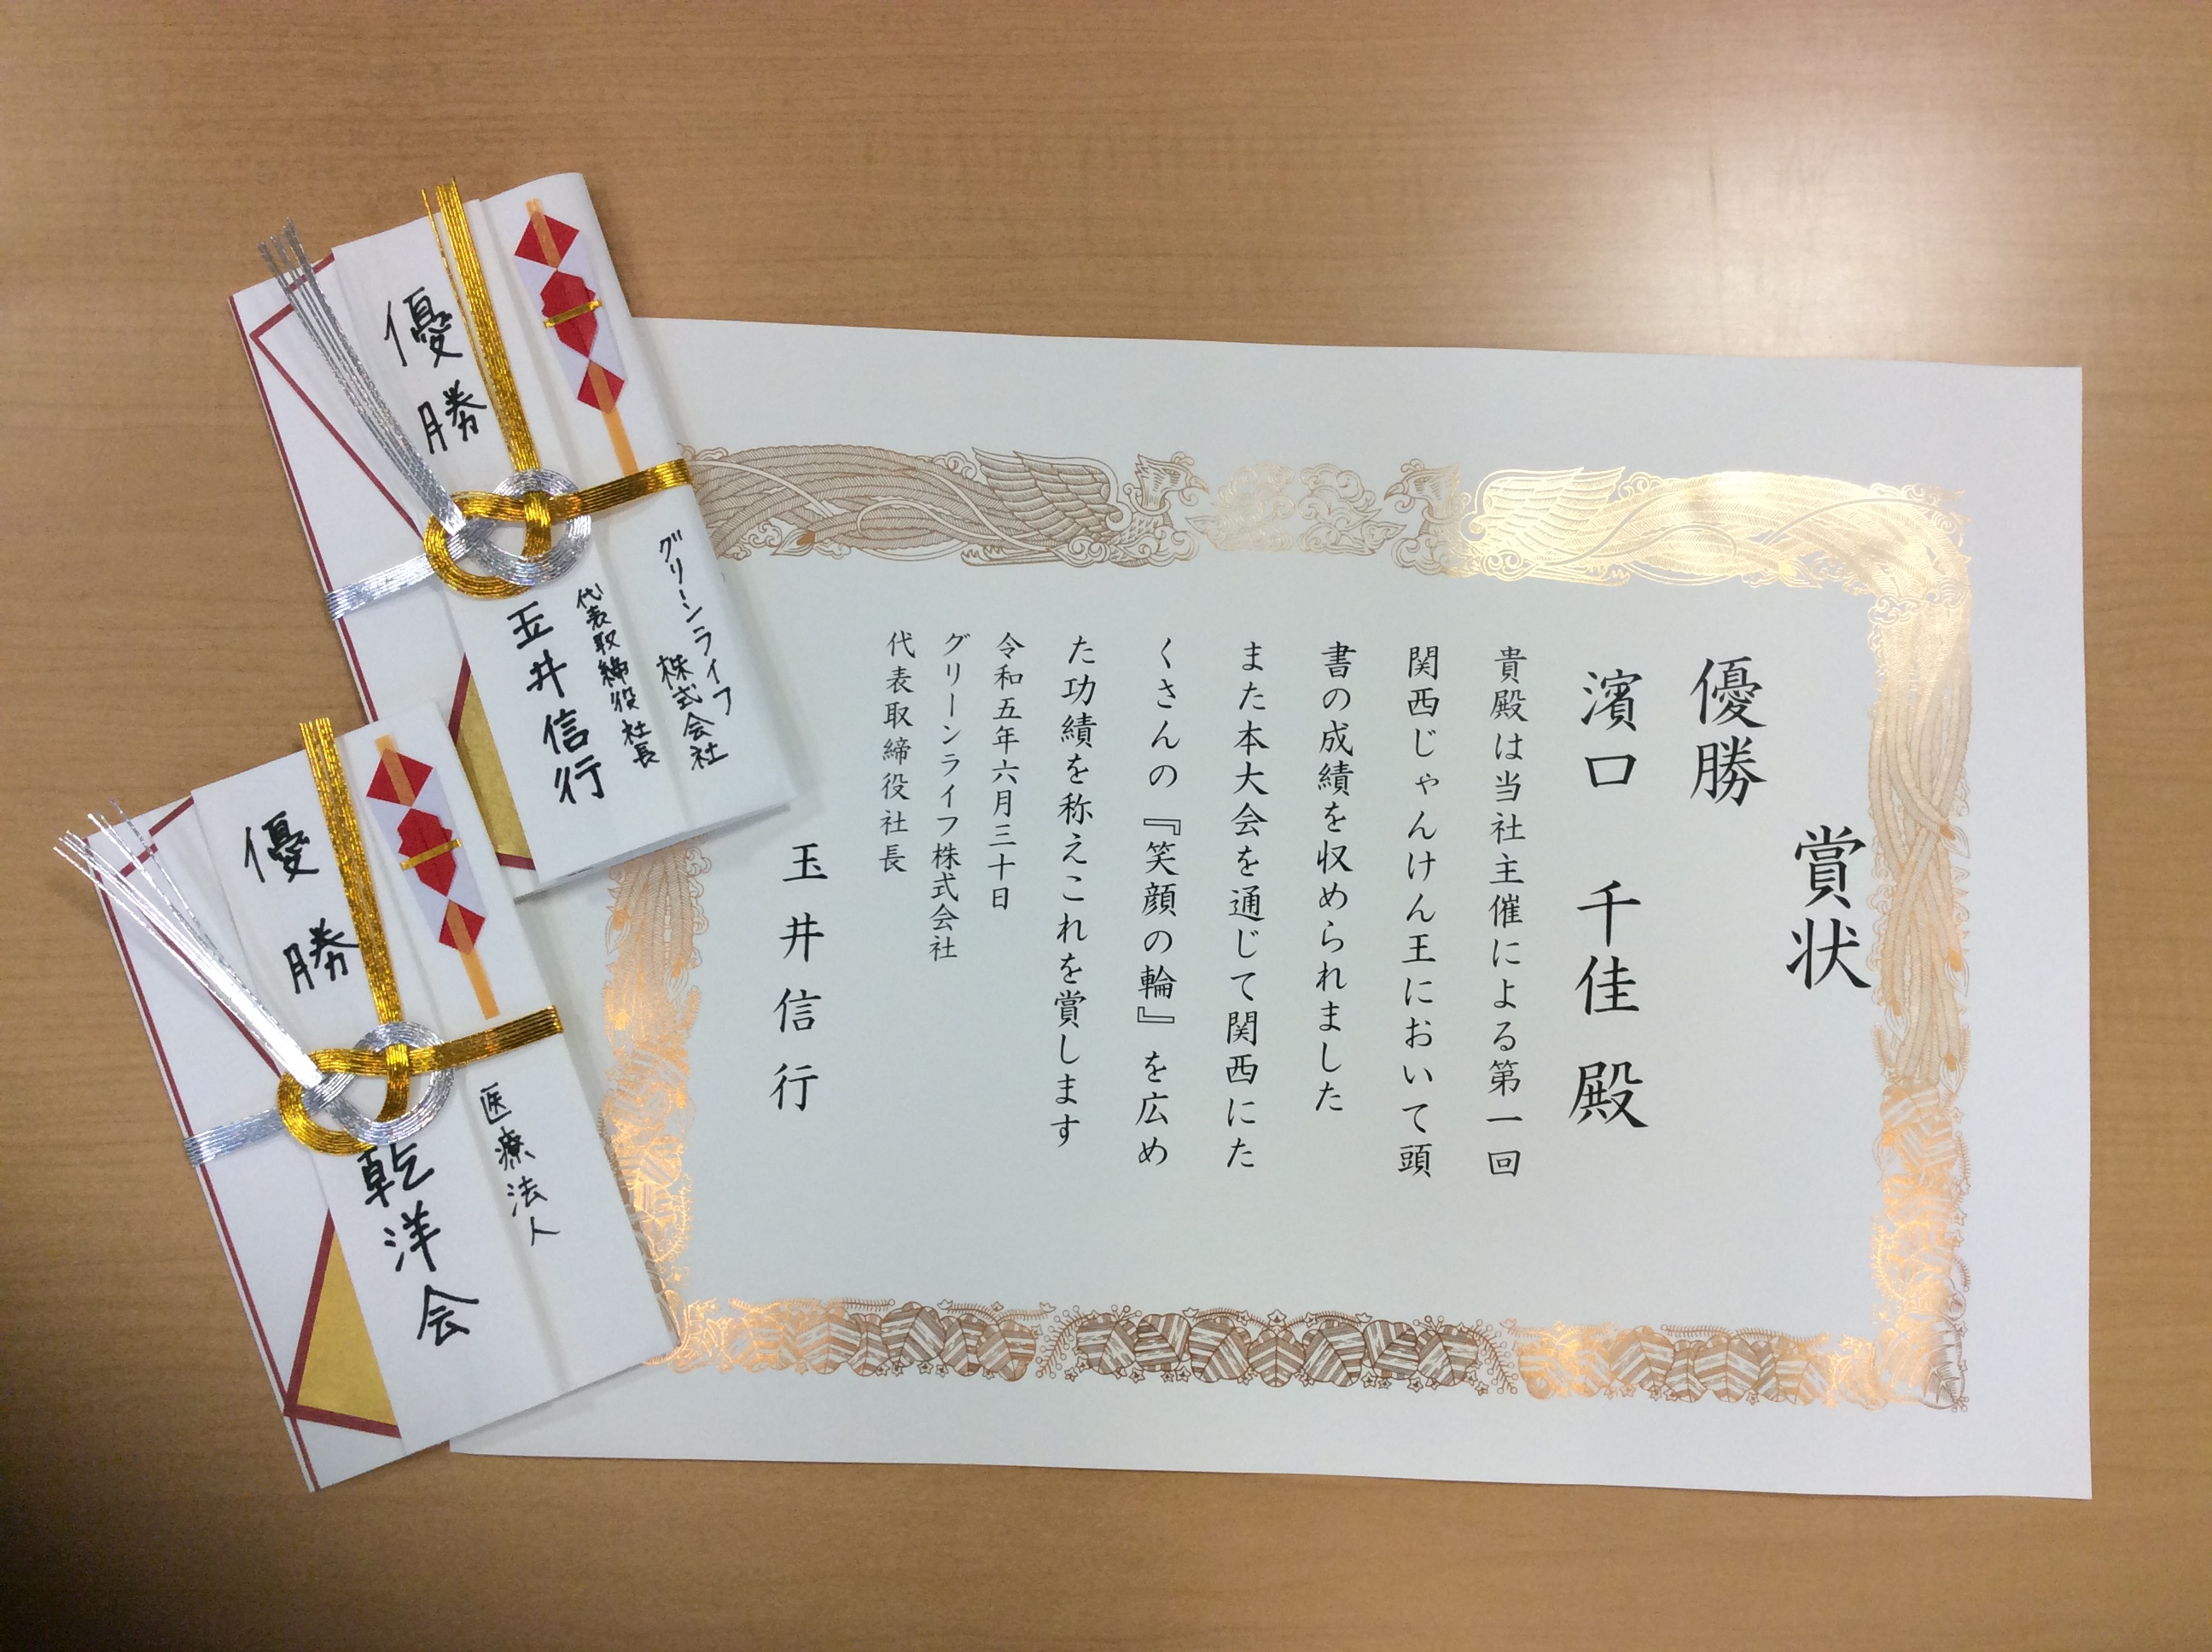 賞状
優勝
濱口千佳殿
貴殿は当社主催による第一回
関西じゃんけん王において頭
書の成績を収められました
また本大会を通じて関西にた
くさんの『笑顔の輪』を広め
た功績を称えこれを賞します
令和五年六月三十日
グリーンライフ株式会社
代表取締役社長
玉井信行
優勝
医療法人
乾洋会
優勝
グリーンライフ
株式会社
代表取締役社長
玉井信行